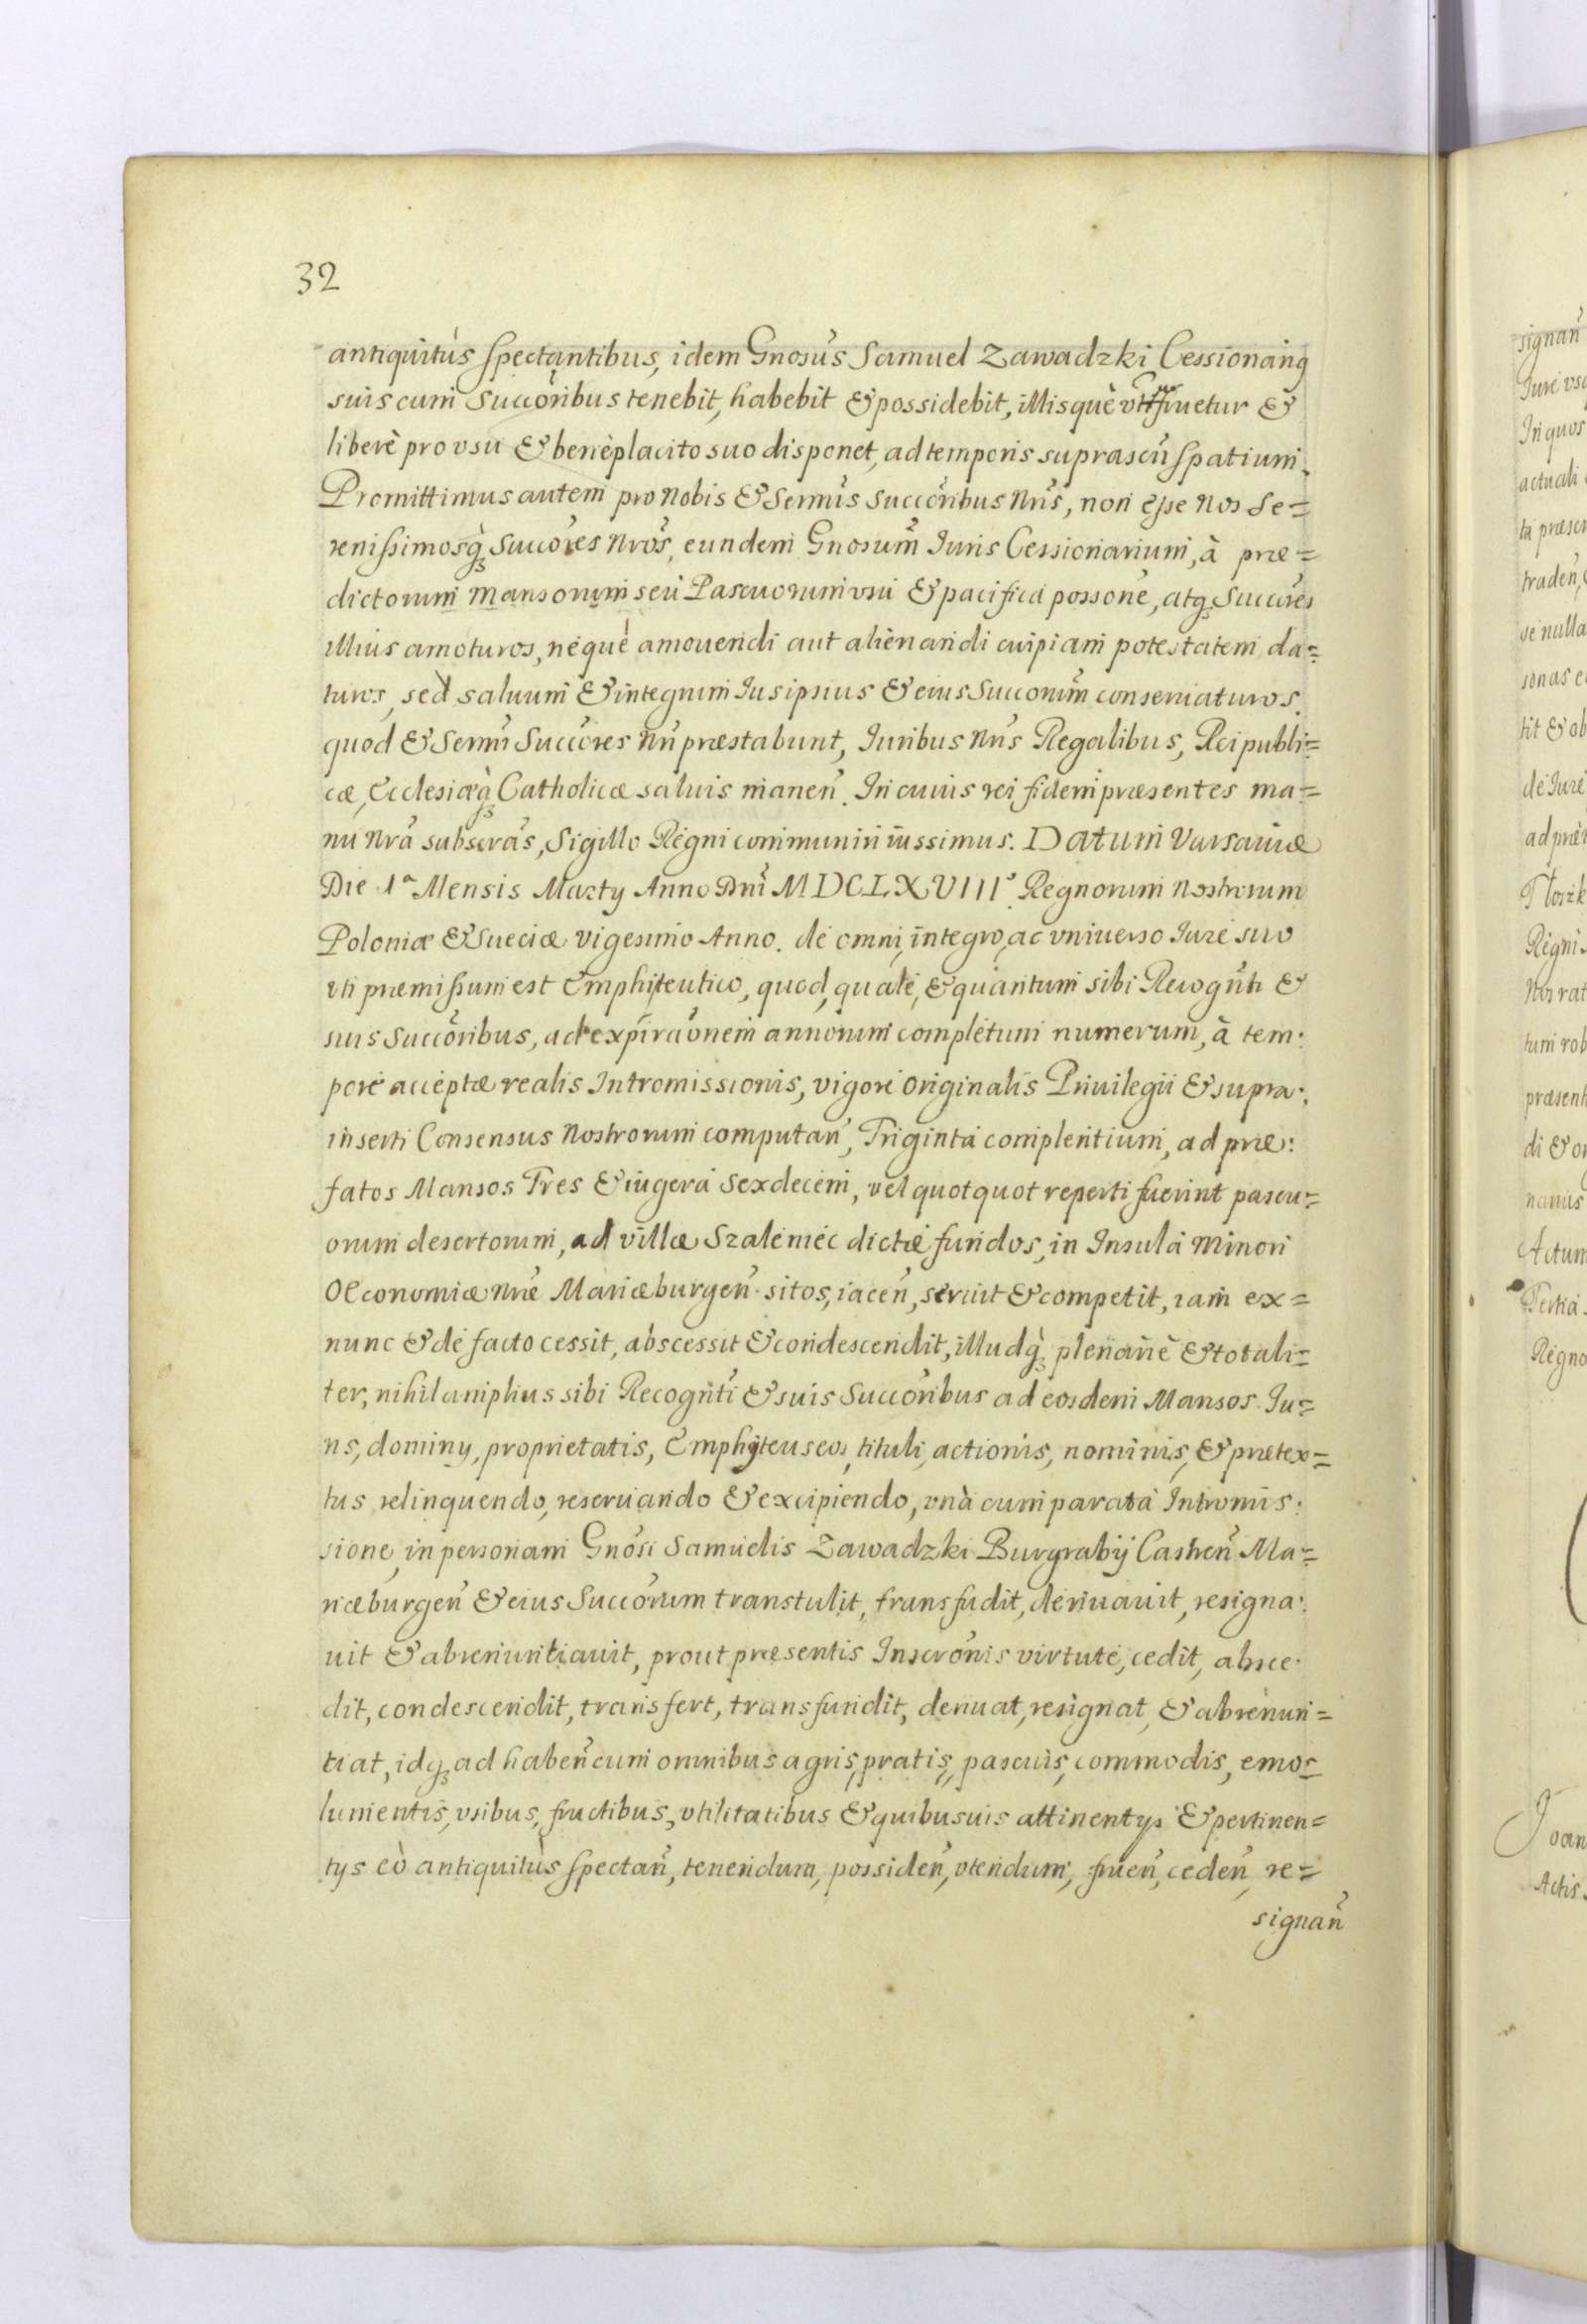 32
antiquitùs spectantibus, idem Gnosus Samuel Zawadzki Cessionariq
suis cum Succoribus tenebit, habebit & possidebit, illisquè fruetur &
liberè pro vsu & benèplacito suo disponet, ad temporis suprascñ spatium.
Promittimus autem pro Nobis & Sermis Succoribus Nris, non esse Nos Se=
renissimosq̀ Succores Nros, eundem Gnosum Iuris Cessionarium, à præ=
dictorum Mansorum seu Pascuorum vsu & pacifica possone, atq Succores
illius amoturos, nequè amouendi aut alienandi cuipiam potestatem da=
turos, sed saluum & integrum Ius ipsius & eius Succorum conseruaturos.
quod & Sermi Succores Nri præstabunt, Iuribus Nris Regalibus, Reipubli=
cæ, Ecclesiæq̀ Catholicæ saluis manen. In cuius rei fidem præsentes ma=
nu Nra subscras, Sigillo Regni communiri iussimus. Datum Varsauiæ
Die 1a Mensis Marty Anno Dni MDCLXVIII. Regnorum Nostrorum
Poloniæ & Sueciæ vigesimo Anno. de omni, integro, ac vniuerso Iure suo
vti præmissum est Emphiteutico, quod, quale, & quantum sibi Recognti &
suis Succoribus, ad expiraonem annorum completum numerum, à tem:
pore acceptæ realis Intromissionis, vigore Originalis Priuilegii & supra:
inserti Consensus Nostrorum computan, Triginta complentium, ad præ:
fatos Mansos Tres & iugera Sexdecem, vel quotquot reperti fuerint pascu=
orum desertorum, ad villæ Szaleniec dictæ fundos, in Insula Minori
Oeconomiæ Nræ Mariæburgen sitos, iacen, seruit & competit, iam ex=
nunc & de facto cessit, abscessit & condescendit, illudq̀ plenariè & totali=
ter, nihil amplius sibi Recognti & suis Succoribus ad eosdem Mansos Iu=
ris, dominy, proprietatis, Emphyteuseos, tituli, actionis, nominis, & prætex=
tus relinquendo, reseruando & excipiendo, vnà cum parata Intromis:
sione, in personam Gnosi Samuelis Zawadzki Burgrabij Castren Ma=
riæburgen & eius Succorum transtulit, transfudit, deriuauit, resigna:
uit & abrenuntiauit, prout præsentis Inscronis virtute, cedit, absce:
dit, condescendit, transfert, transfundit, deriuat, resignat, & abrenun=
tiat, idq ad haben cum omnibus agris, pratis, pascuis, commodis, emo=
lumentis, vsibus, fructibus, vtilitatibus & quibusuis attinentys & pertinen=
tys eò antiquitùs spectan, tenendum, possiden, vtendum, fruen, ceden, re=
signan